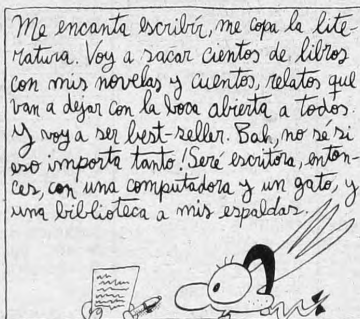 Me encanta escribir, me copa la lite-
ratura. Voy a sacar cientos de libros
con mis novelas y cuentos, relatos que
van a dejar con la boca abierta a todos.
Y voy a ser best-seller. Bah, no sé si
eso importa tanto! Seré escritora, enton-
ces, con una computadora y un gato, y
una biblioteca a mis espaldas.